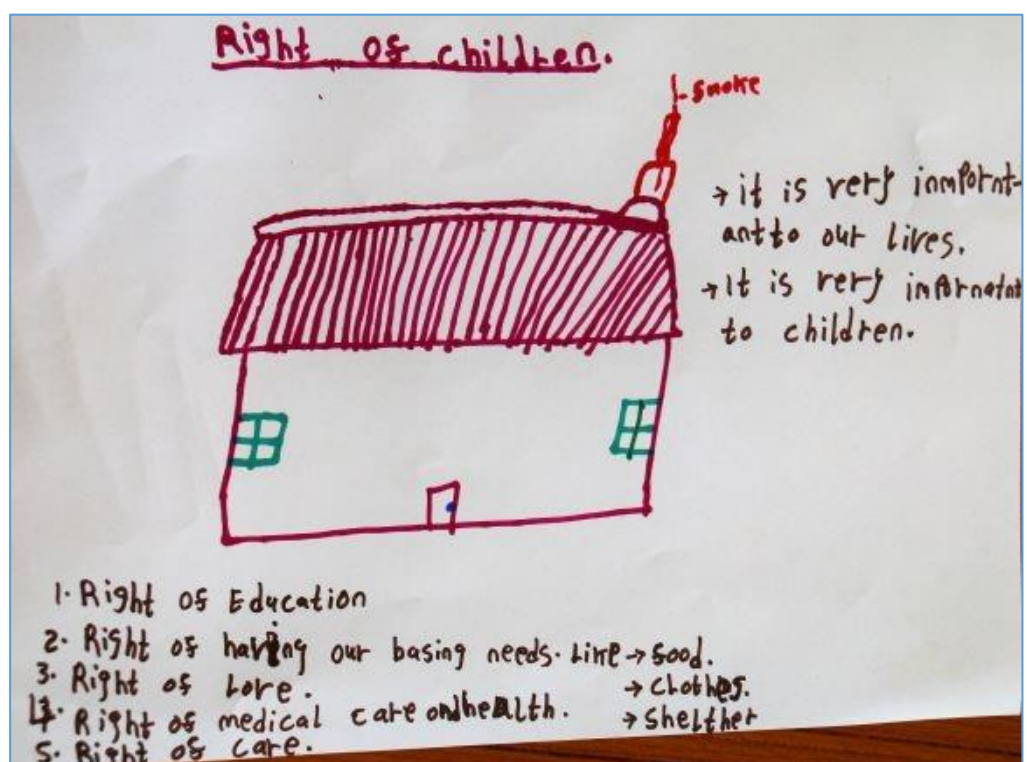 Right of children.
smoke
→ it is very inmfornt-
ant to our lives.
→ It is very infornatnt
to children.
1. Right of Education
2. Right of having our basing needs. Like → food.
3. Right of Love.
→ Clothes.
4. Right of medical care and health.
→ Shelther
5. Right of care.